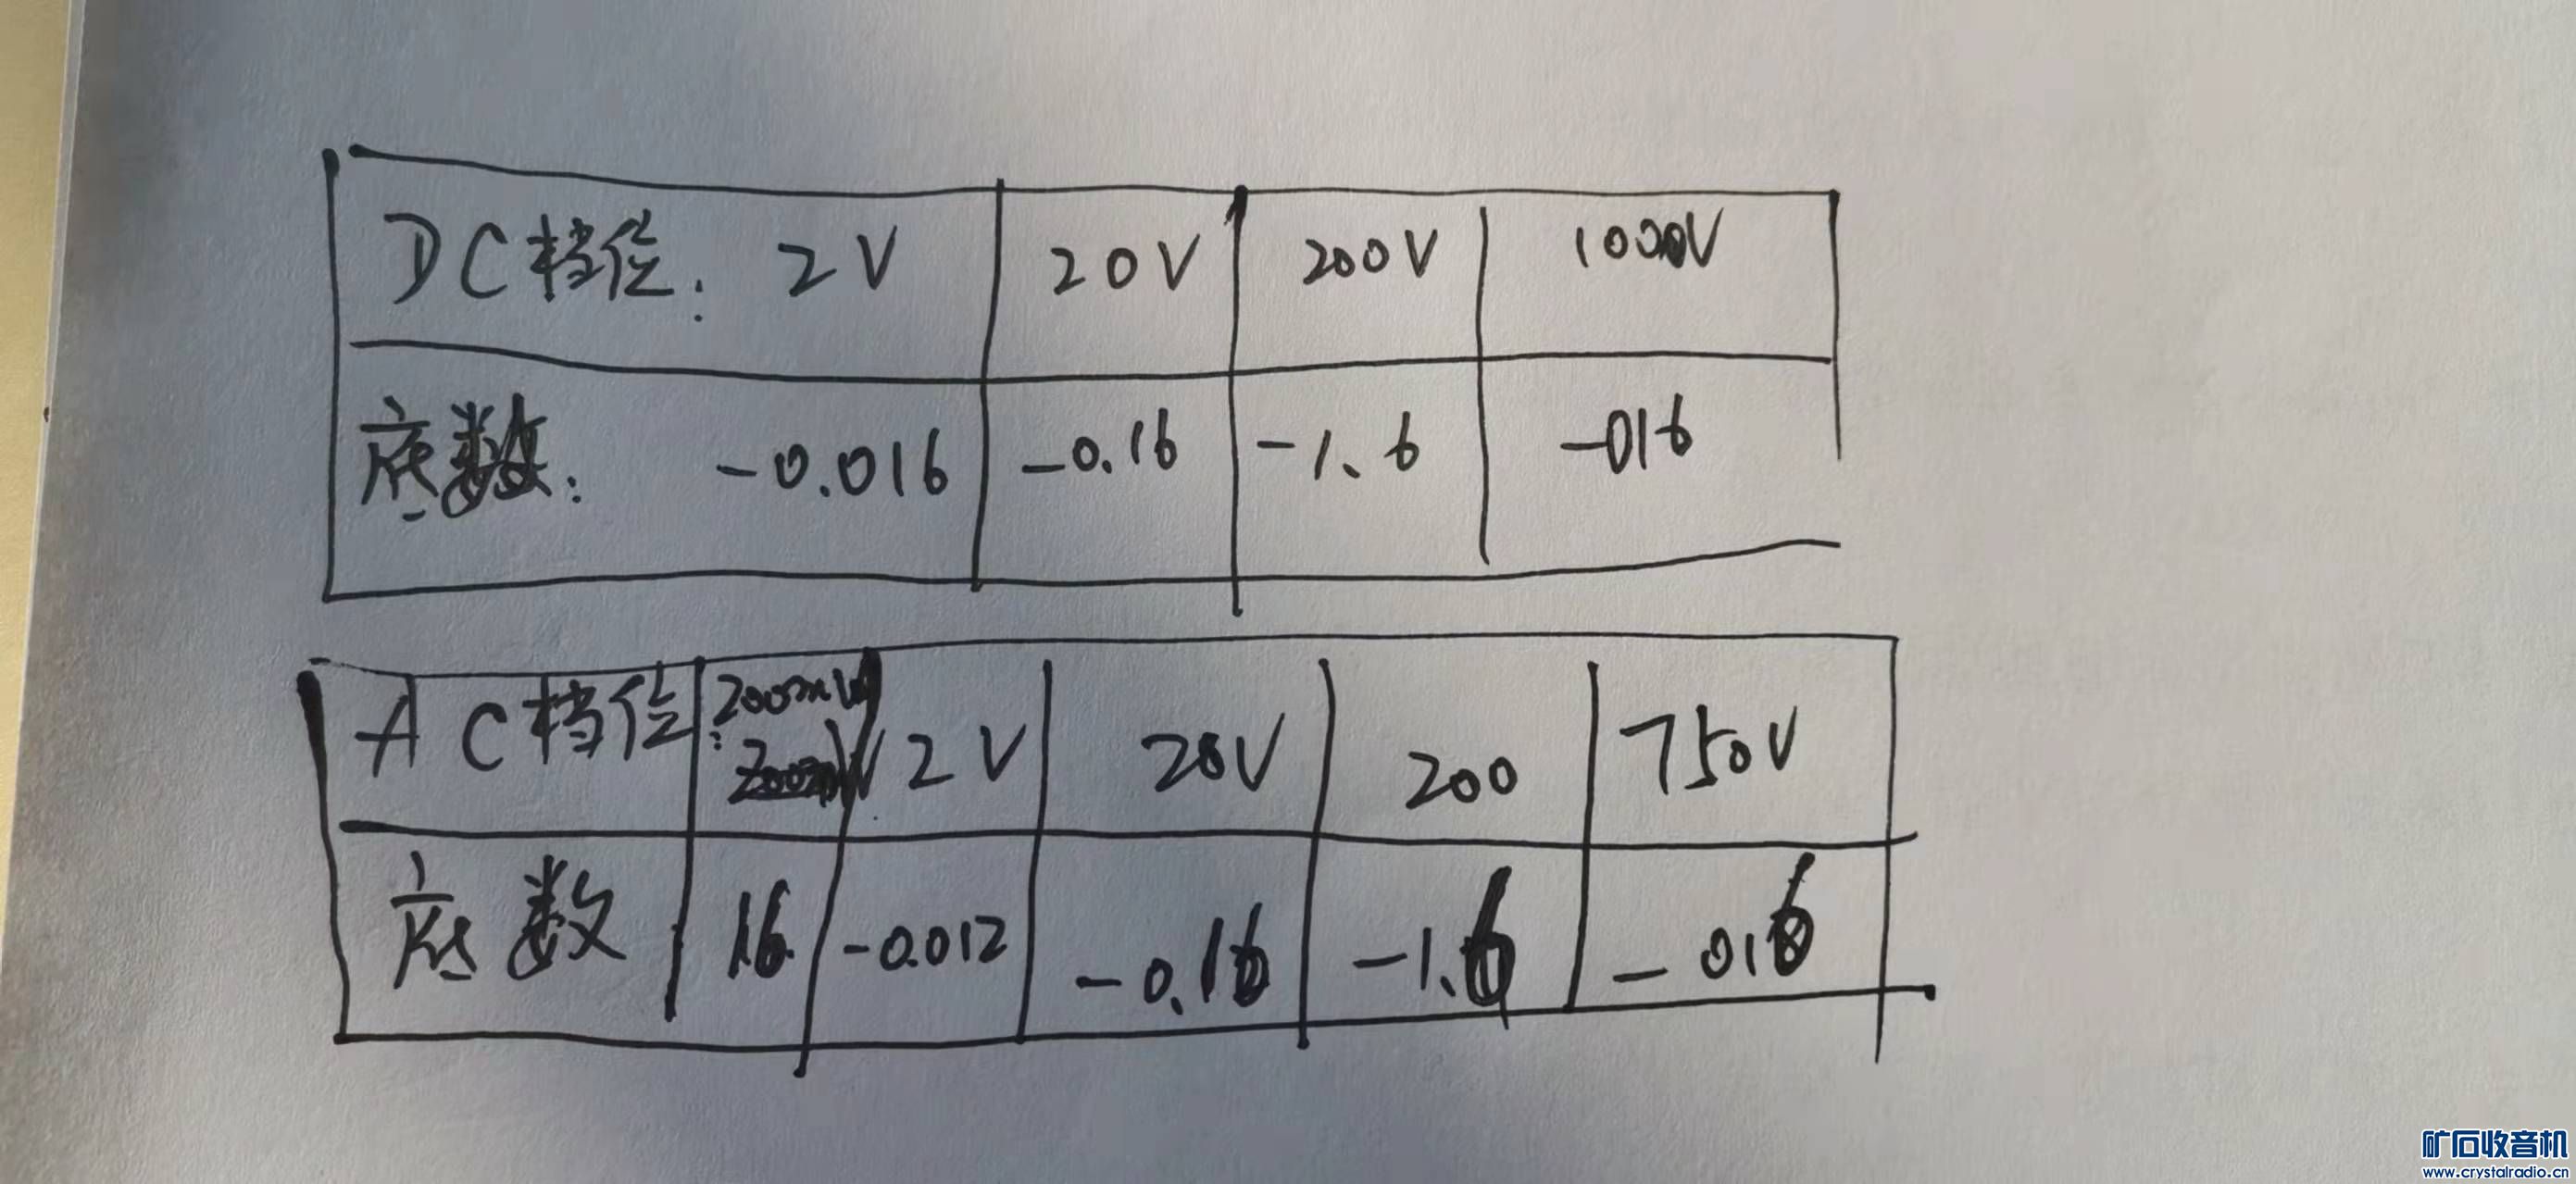 DC档位: 2V 20V 200V 1000V
底数: -0.016 -0.16 -1.6 -016
AC档位: 200mV 2V 20V 200 750V
200mV
底数 16. -0.012 -0.16 -1.6 -016
矿石收音机
www.crystalradio.cn